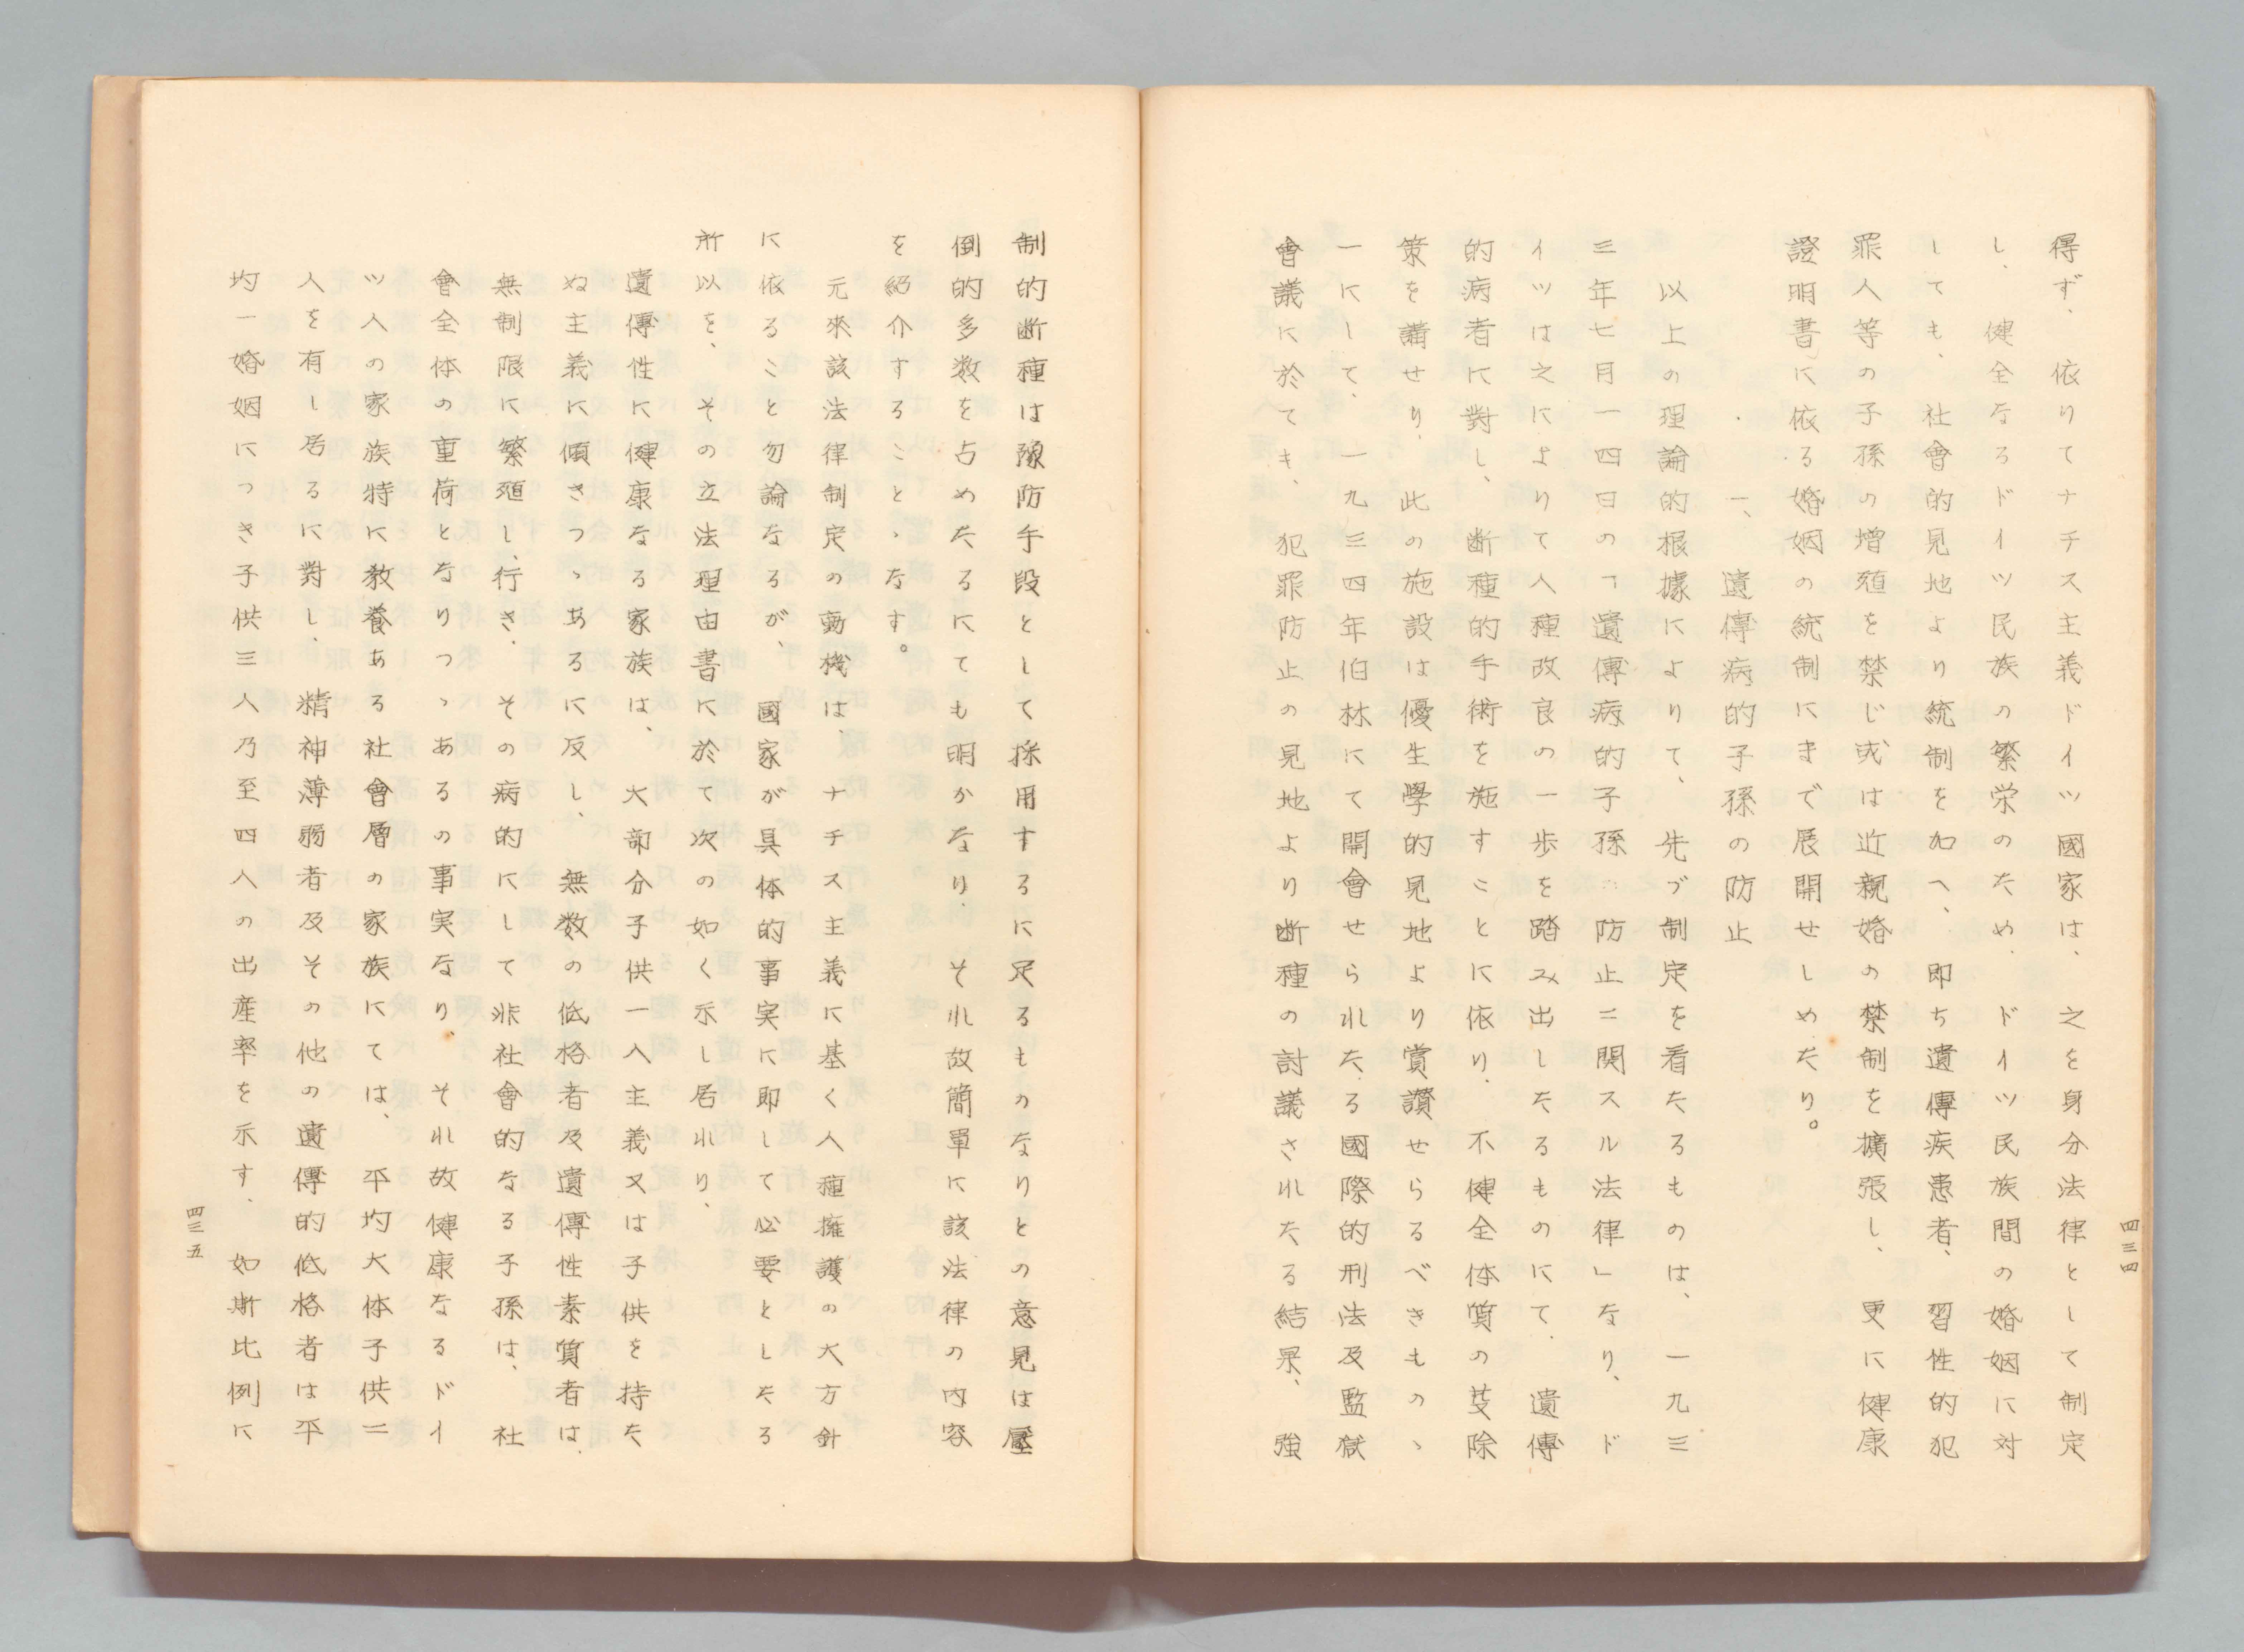 得ず、依りてナチス主義ドイツ國家は、之を身分法律として制定
し、健全なるドイツ民族の繁栄のため、ドイツ民族間の婚姻に対
しても、社會的見地より統制を加へ、即ち遺傳疾患者、習性的犯
罪人等の子孫の増殖を禁じ或は近親婚の禁制を擴張し、更に健康
證明書に依る婚姻の統制にまで展開せしめたり。
一、遺傳病的子孫の防止
以上の理論的根據によりて、先づ制定を看たるものは、一九三
三年七月一四日の「遺傳病的子孫ニ防止ニ関スル法律」なり、ド
イツは之によりて人種改良の一歩を踏み出したるものにて、遺傳
的病者に對し、断種的手術を施すことに依り、不健全体質の芟除
策を講せり、此の施設は優生學的見地より賞讃せらるべきものゝ
一にして、一九三四年伯林にて開會せられたる國際的刑法及監獄
會議に於ても、犯罪防止の見地より断種の討議されたる結果、強
四三四
制的断種は豫防手段として採用するに足るものなりとの意見は壓
倒的多数を占めたるにても明かなり、それ故簡單に該法律の内容
を紹介することゝなす。
元來該法律制定の動機は、ナチス主義に基く人種擁護の大方針
に依ること勿論なるが、國家が具体的事実に即して必要としたる
所以を、その立法理由書に於て次の如く示し居れり、
遺傳性に健康なる家族は、大部分子供一人主義又は子供を持た
ぬ主義に傾きつゝあるに反し、無数の低格者及遺傳性素質者は、
無制限に繁殖し、行き、その病的にして非社會的なる子孫は、社
會全体の重荷となりつゝあるの事実なり、それ故健康なるドイ
ツ人の家族特に教養ある社會層の家族にては、平均大体子供二
人を有し居るに對し、精神薄弱者及その他の遺傳的低格者は平
均一婚姻につき子供三人乃至四人の出産率を示す、如斯比例に
四三五